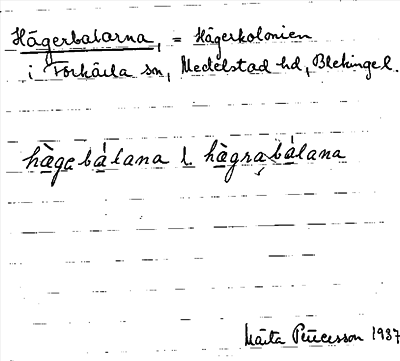 Hägerbalarna, = Hägerkolonien
i Förkärla sn, Medelstad hd, Blekinge l.
hàgebálana l. hàgrabálana
Märta Petersson 1937